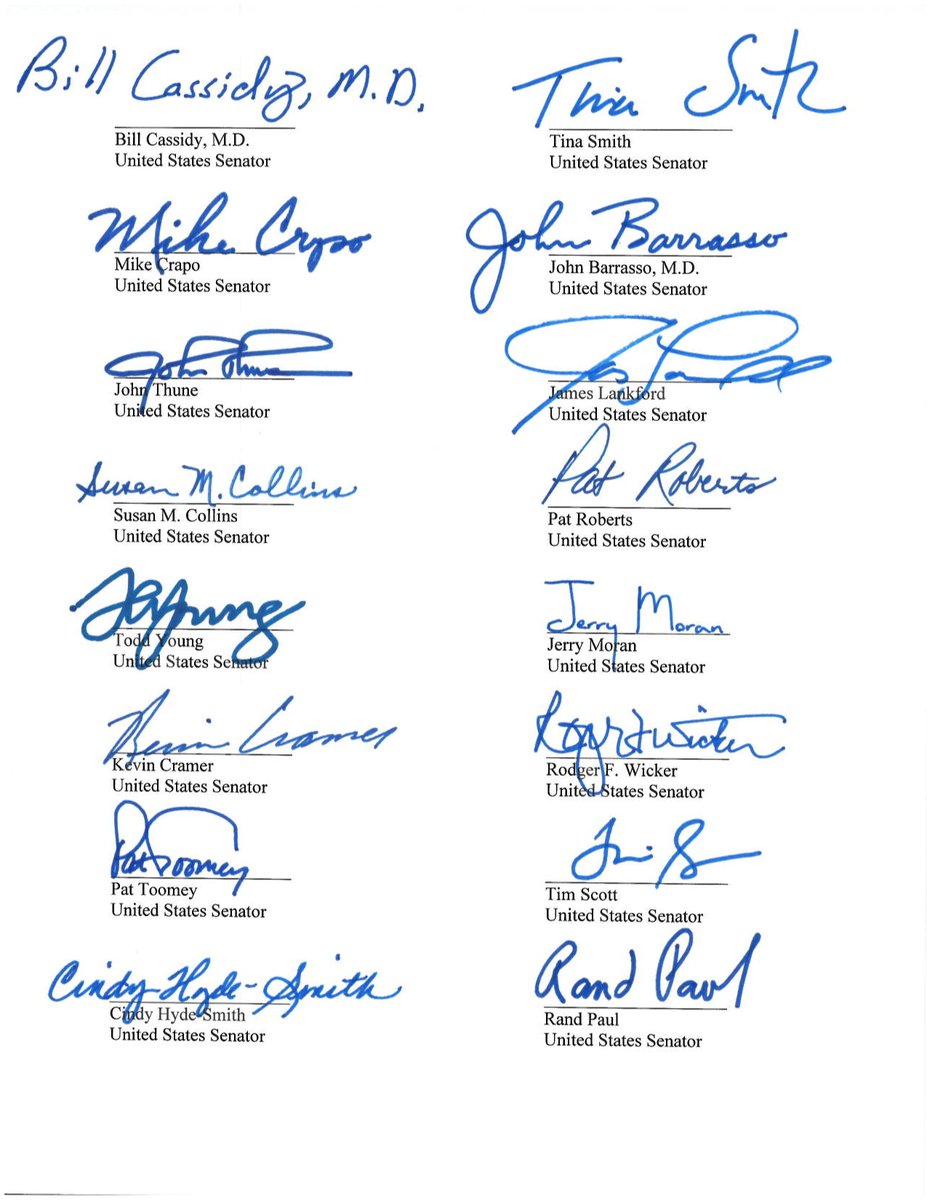 Bill Cassidy, M.D.
Bill Cassidy, M.D.
United States Senator
Tina Smith
Tina Smith
United States Senator
Mike Crapo
Mike Crapo
United States Senator
John Barrasso
John Barrasso, M.D.
United States Senator
John Thune
John Thune
United States Senator
James Lankford
United States Senator
Susan M. Collins
Susan M. Collins
United States Senator
Pat Roberts
Pat Roberts
United States Senator
Todd Young
United States Senator
Jerry Moran
Jerry Moran
United States Senator
Kevin Cramer
Kevin Cramer
United States Senator
Roger F Wicker
Rodger F. Wicker
United States Senator
Pat Toomey
Pat Toomey
United States Senator
Tim Scott
United States Senator
Cindy Hyde-Smith
Cindy Hyde Smith
United States Senator
Rand Paul
Rand Paul
United States Senator